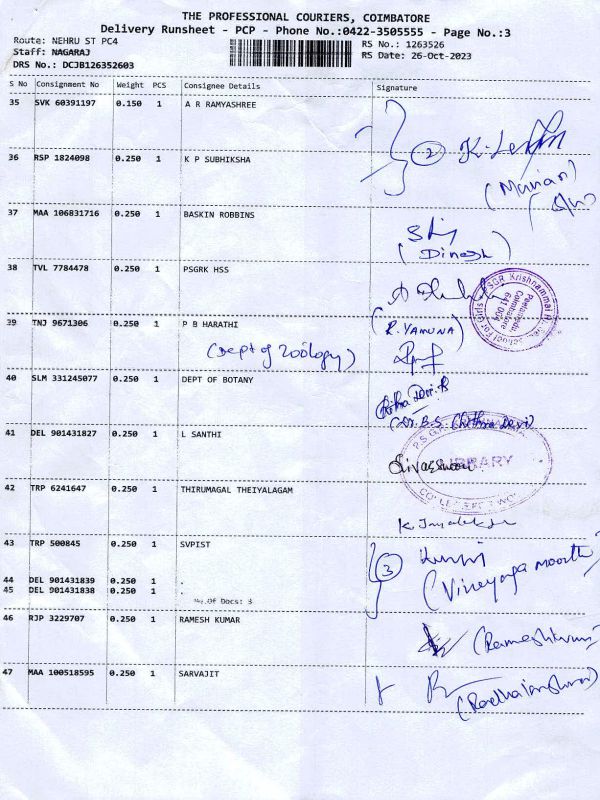 THE PROFESSIONAL COURIERS, COIMBATORE
Delivery Runsheet - PCP - Phone No.:0422-3505555 - Page No.:3
Route: NEHRU ST PC4
RS No.: 1263526
Staff: NAGARAJ
RS Date: 26-Oct-2023
DRS No.: DCJB126352603
S No Consignment No Weight PCS Consignee Details Signature
35 SVK 60391197 0.150 1 A R RAMYASHREE
2
36 RSP 1824098 0.250 1 K P SUBHIKSHA
37 MAA 106831716 0.250 1 BASKIN ROBBINS
(Dinesh)
38 TVL 7784478 0.250 1 PSGRK HSS
39 TNJ 9671306 0.250 1 P B HARATHI
(R. YAMUNA)
(Dept of Zoology)
40 SLM 331245077 0.250 1 DEPT OF BOTANY
41 DEL 901431827 0.250 1 L SANTHI
LIBRARY
42 TRP 6241647 0.250 1 THIRUMAGAL THEIYALAGAM
43 TRP 500845 0.250 1 SVPIST
3
44 DEL 901431839 0.250 1 .
45 DEL 901431838 0.250 1 .
No.Of Docs: 3
46 RJP 3229707 0.250 1 RAMESH KUMAR
47 MAA 100518595 0.250 1 SARVAJIT